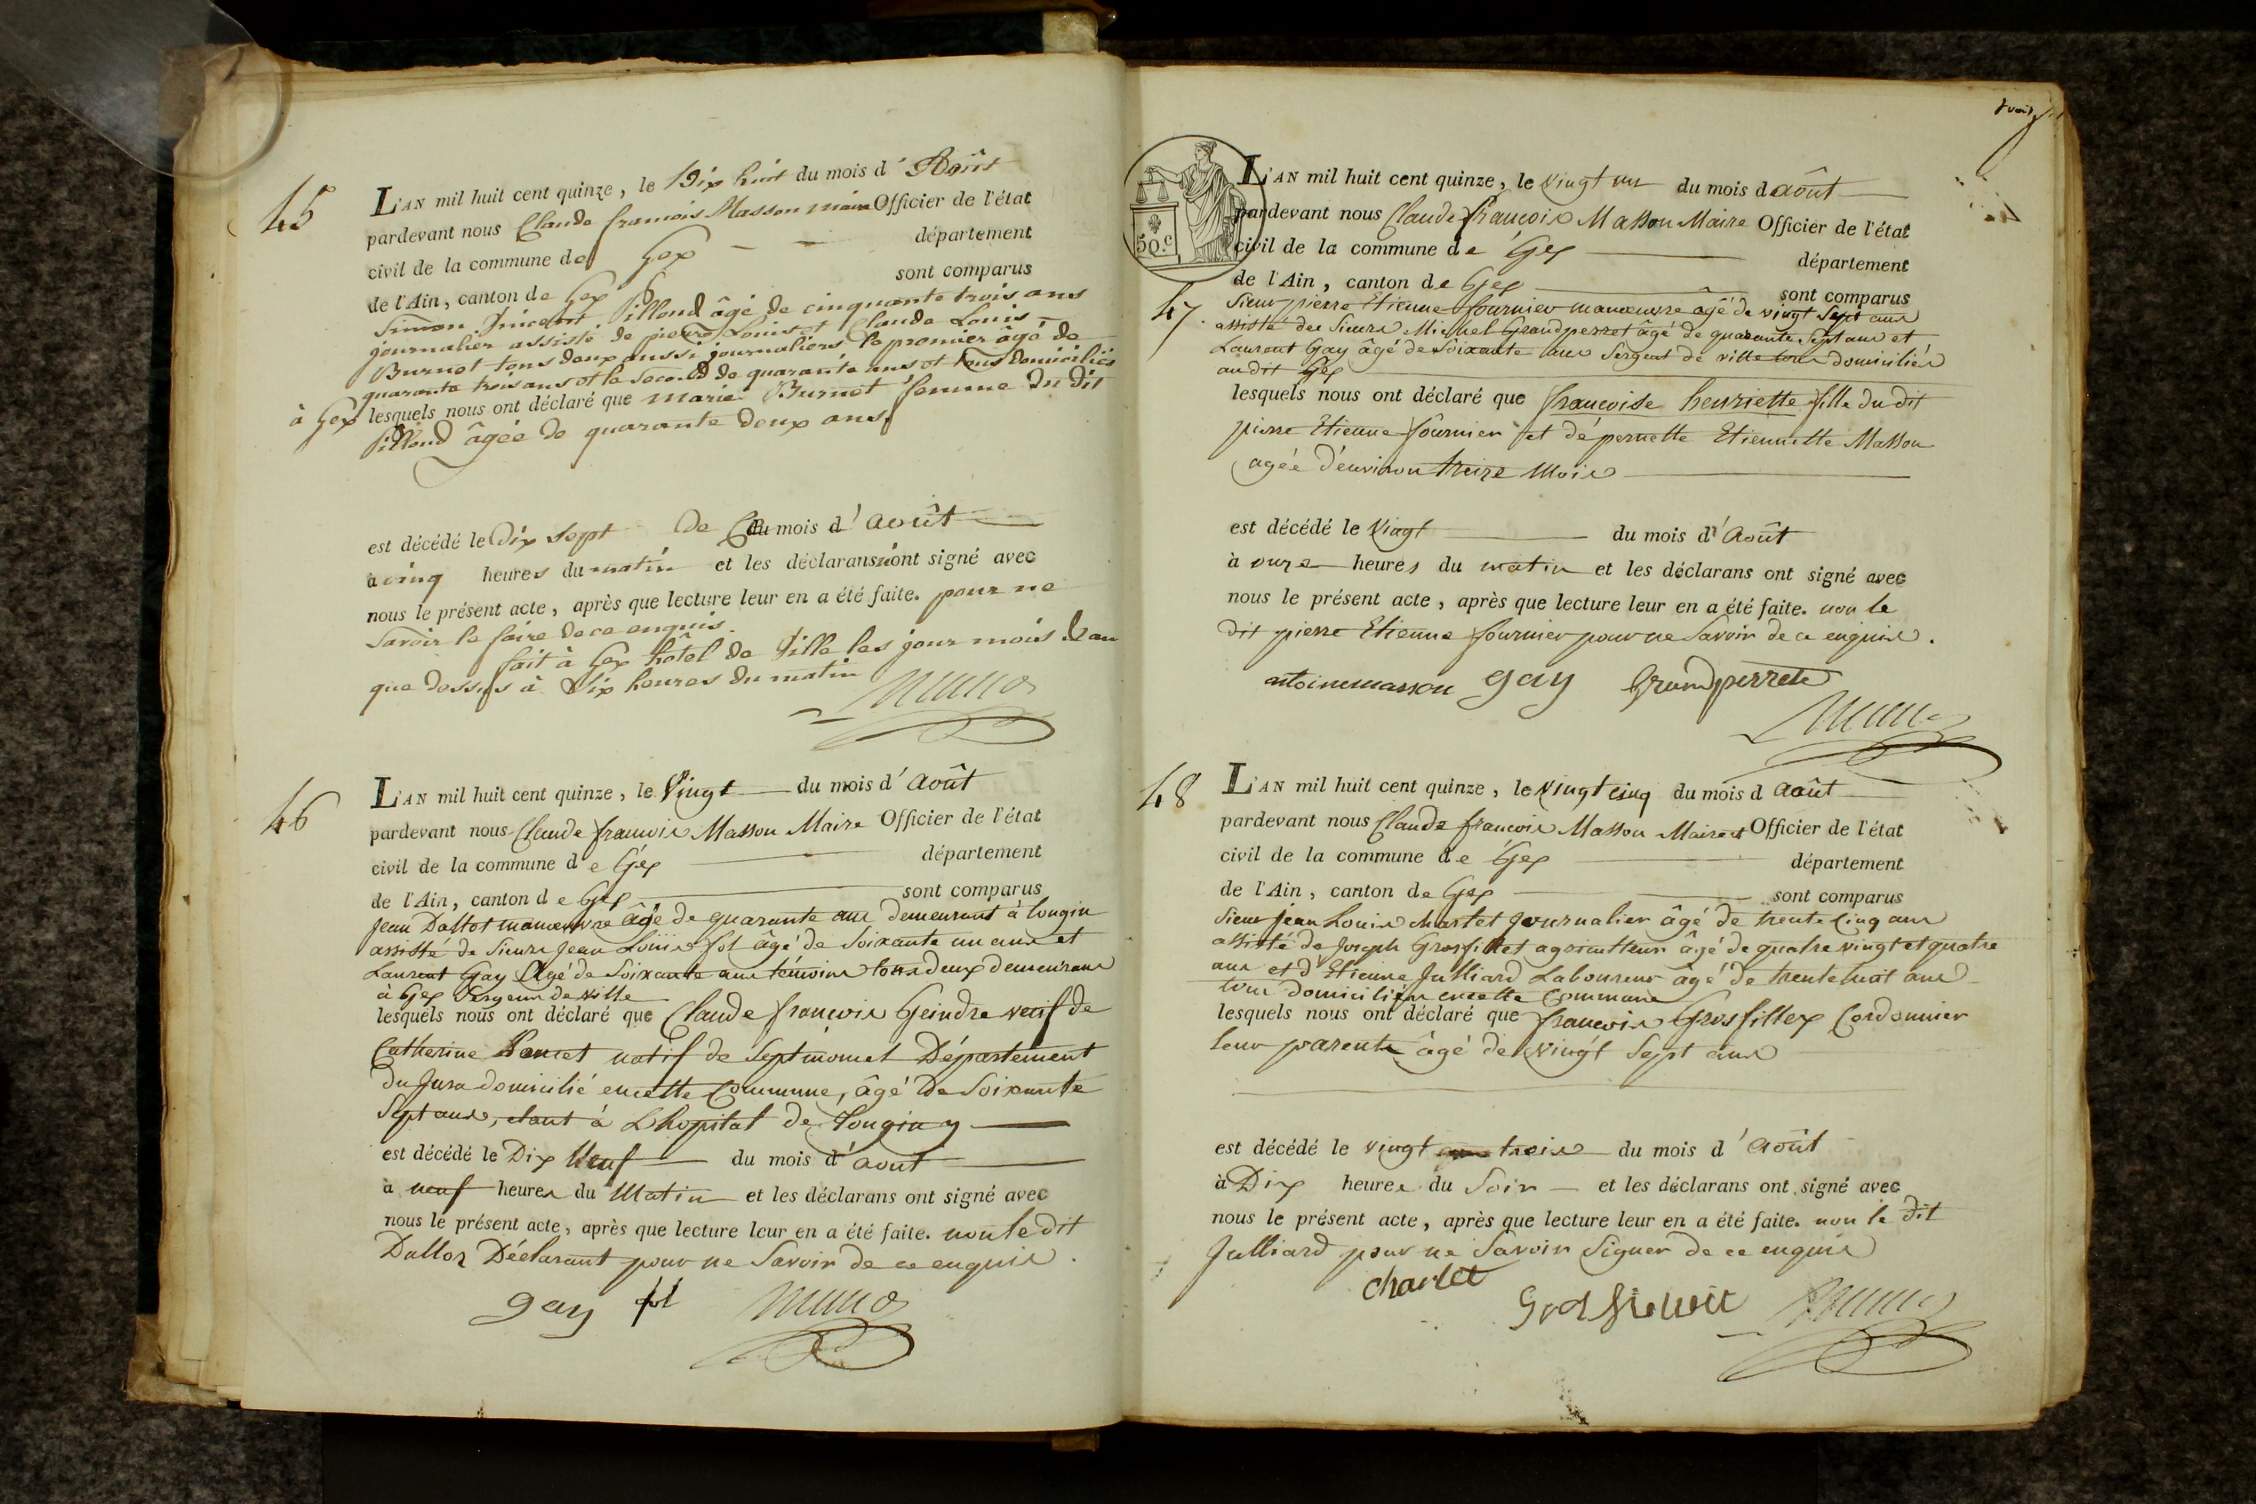 45
L'AN mil huit cent quinze, le Dix huit du mois d' Août
pardevant nous Claude francois Masson maire Officier de l'état
civil de la commune de Gex département
de l'Ain, canton de Gex sont comparus
Simon Vincent Pilloud âgé de cinquante trois ans
journalier assisté de pierre Louis et Claude Louis
Burnot tous deux aussi journaliers le premier âgé de
quarante trois ans et le second de quarante ans et tous domiciliés
à Gex lesquels nous ont déclaré que marie Burnot femme du dit
Pilloud âgée de quarante deux ans
est décédé le dix sept de Ce du mois d' août
à cinq heures du matin et les déclarans n'ont signé avec
nous le présent acte, après que lecture leur en a été faite. pour ne
savoir le faire de ce enquis.
fait à Gex hôtel de Ville les jour mois & an
que dessus à dix heures du matin
46
L'AN mil huit cent quinze, le Vingt du mois d' août
pardevant nous Claude francois Masson Maire Officier de l'état
civil de la commune de Gex département
de l'Ain, canton de Gex sont comparus
Jean Dallot manoeuvre âgé de quarante ans demeurant à tougin
assisté de Sieurs Jean Louis fol âgé de Soixante un ans et
Laurent Gay Agé de Soixante ans témoins tous deux demeurans
à Gex Sergent de ville
lesquels nous ont déclaré que Claude francois Geindre veuf de
Catherine natif de Septmoncel Département
du Jura domicilié en cette Commune, âgé de Soixante
Sept ans, étant à L'hopital de Tougin
est décédé le Dix Neuf du mois d' aout
à neuf heures du Matin et les déclarans ont signé avec
nous le présent acte, après que lecture leur en a été faite. non le dit
Dalloz Déclarant pour ne Savoir de ce enquis.
gay fol
50.c
L'AN mil huit cent quinze, le vingt un du mois d août
pardevant nous Claude francois Masson Maire Officier de l'état
civil de la commune de Gex département
de l'Ain, canton de Gex sont comparus
47
Sieur pierre Etienne fournier manoeuvre âgé de vingt Sept ans
assisté des Sieurs Michel Grandperret âgé de quarante Sept ans et
Laurent Gay âgé de Soixante ans Sergent de ville tous domiciliés
audit Gex
lesquels nous ont déclaré que francoise henriette fille du dit
pierre Etienne fournier et de pernette Etiennette Masson
agée d'environ treize Mois
est décédé le Vingt du mois d' Août
à onze heures du matin et les déclarans ont signé avec
nous le présent acte, après que lecture leur en a été faite. non le
dit pierre Etienne fournier pour ne Savoir de ce enquis.
antoine masson gay Grandperret
48
L'AN mil huit cent quinze, le vingt cinq du mois d août
pardevant nous Claude francois Masson Maire Officier de l'état
civil de la commune de Gex département
de l'Ain, canton de Gex sont comparus
Sieur jean Louis charlet Journalier âgé de trente Cinq ans
assisté de Joseph Grosfillet agriculteur âgé de quatre vingt et quatre
ans et d'Etienne Julliard Laboureur âgé de trente huit ans
tous domiciliés en cette Commune
lesquels nous ont déclaré que francois Grosfillex Cordonnier
leur parent âgé de vingt Sept ans
est décédé le vingt trois du mois d' août
à Dix heures du Soir et les déclarans ont signé avec
nous le présent acte, après que lecture leur en a été faite. non le dit
Julliard pour ne Savoir Signer de ce enquis
charlet